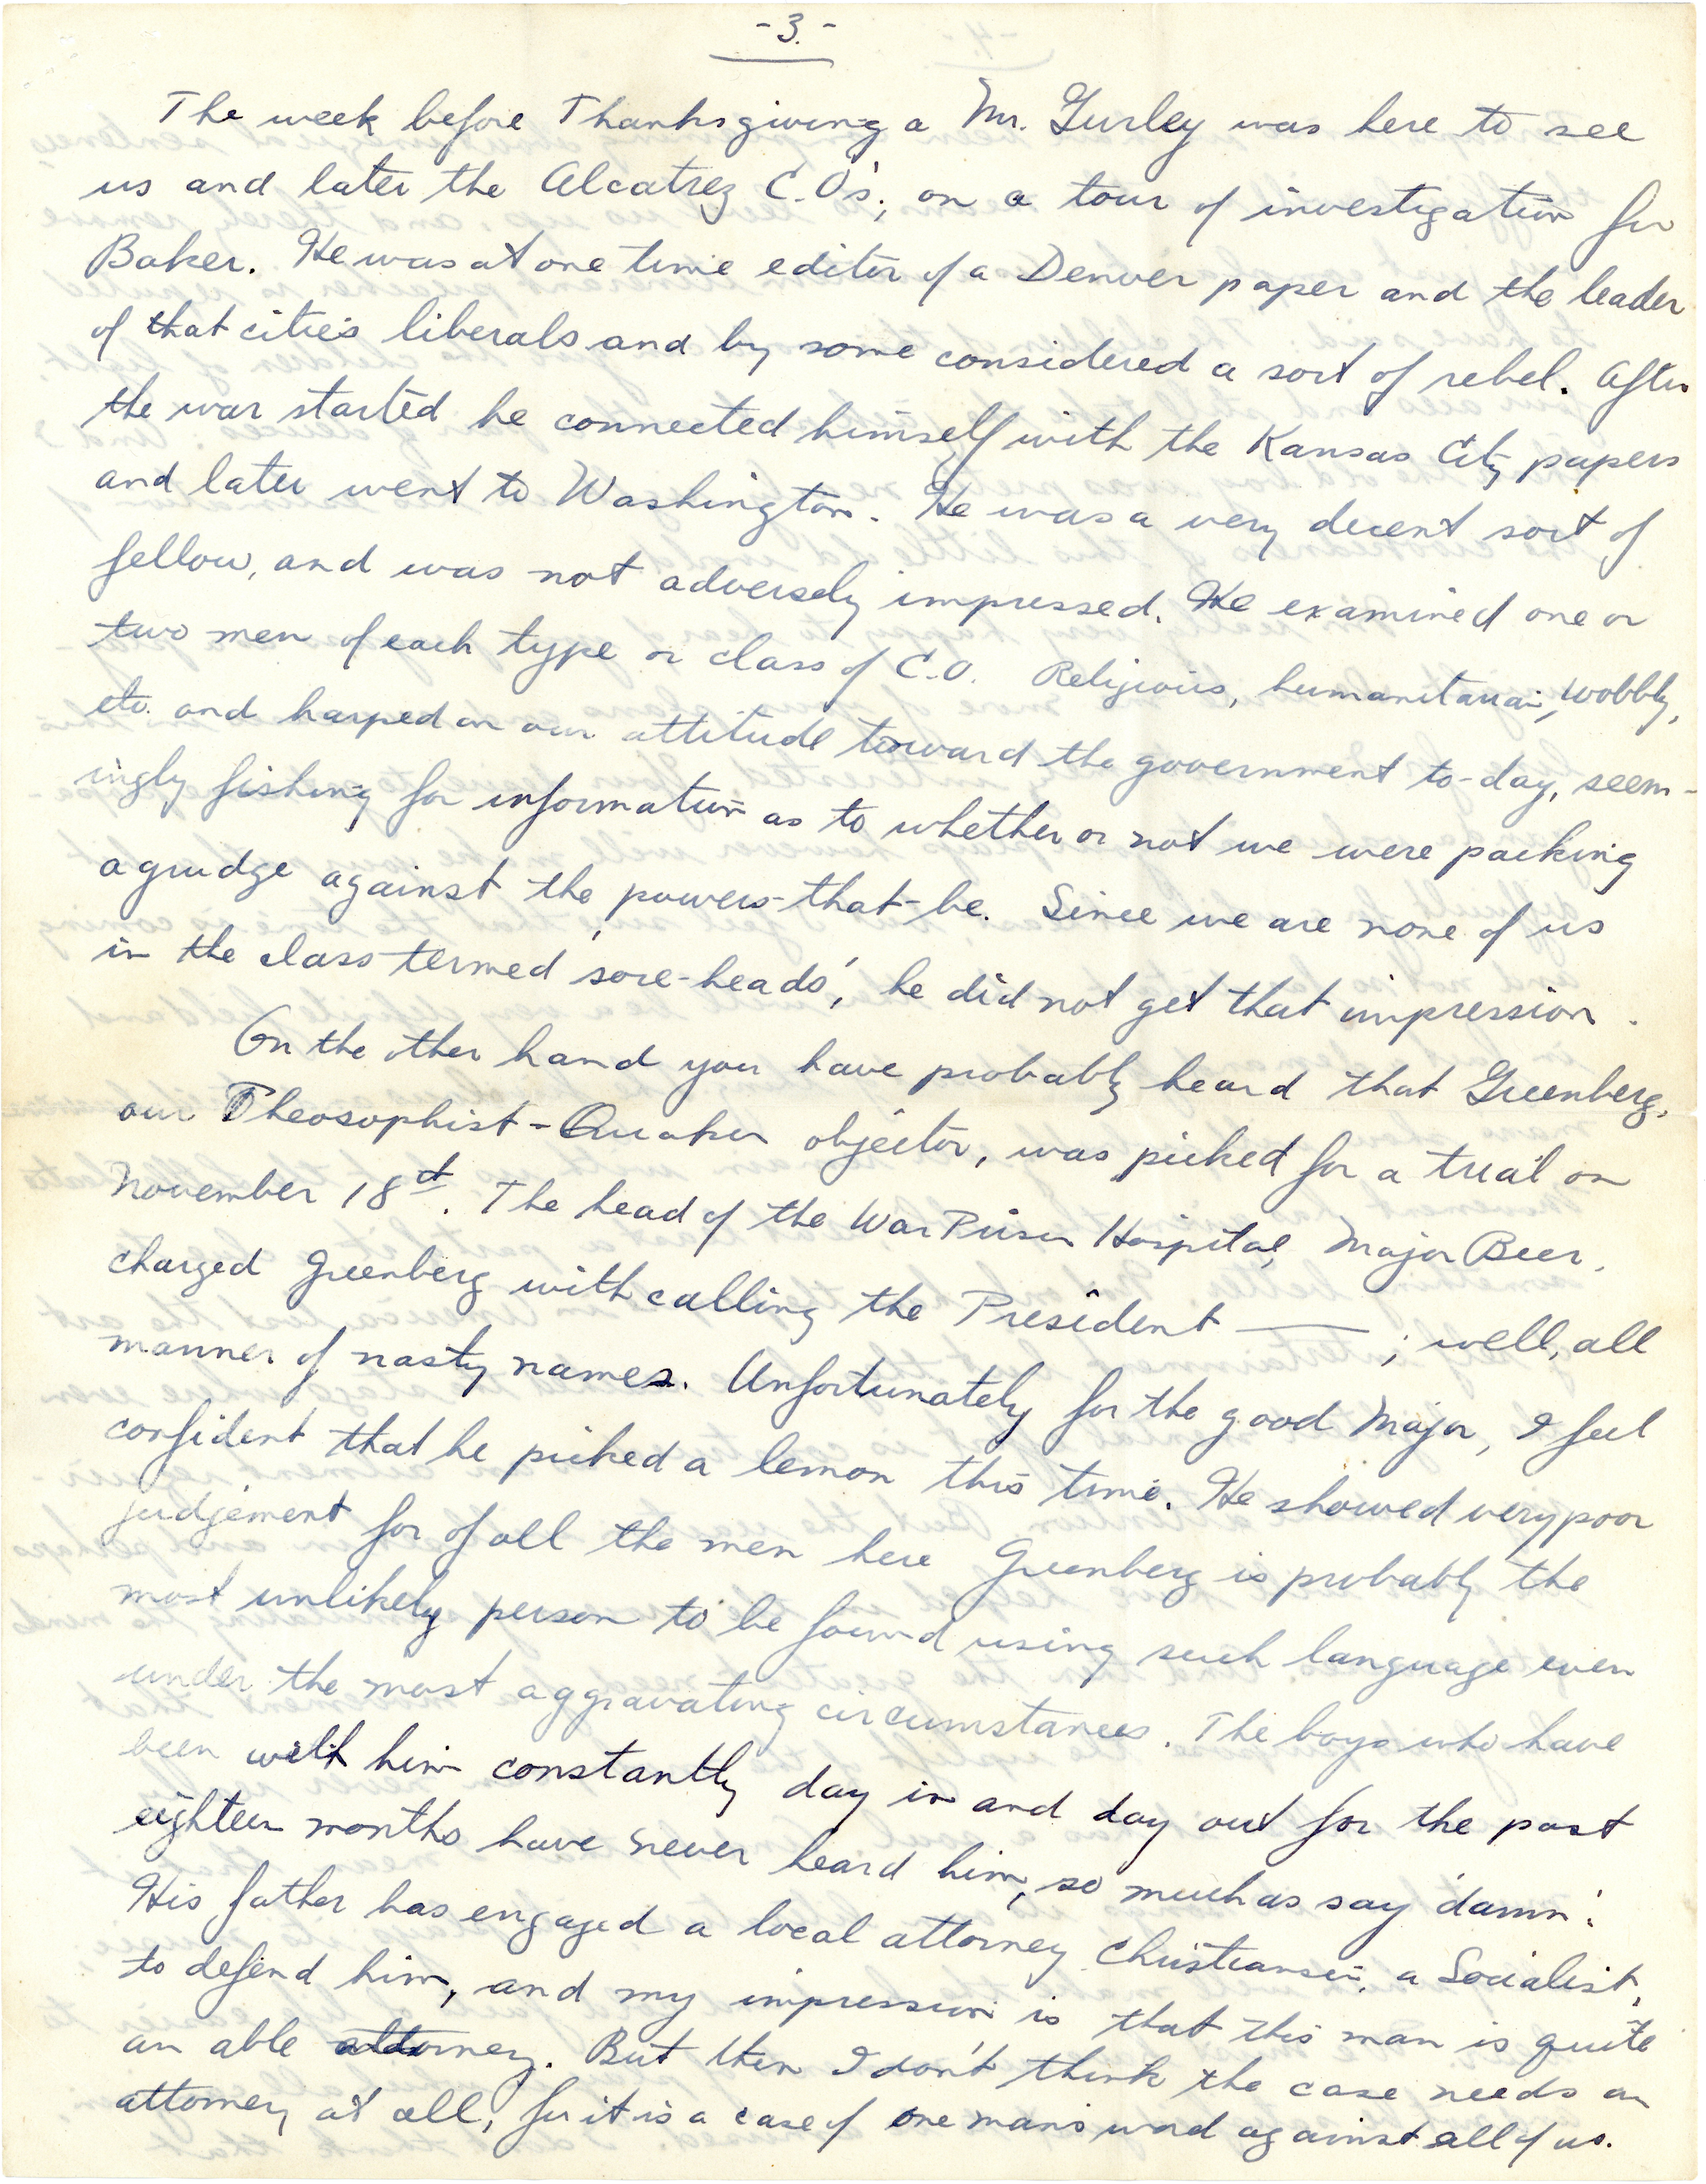 -3.-
The week before Thanksgiving a Mr. Gurley was here to see
us and later the Alcatrez C.O's; on a tour of investigation for
Baker. He was at one time editor of a Denver paper and the leader
of that citie's liberals and by some considered a sort of rebel. After
the war started he connected himself with the Kansas City papers
and later went to Washington. He was a very decent sort of
fellow, and was not adversely impressed. He examined one or
two men of each type or class of C.O. Religious, humanitarian, Wobbly,
etc. and harped on our attitude toward the government to-day, seem-
ingly fishing for information as to whether or not we were packing
a grudge against the powers-that-be. Since we are none of us
in the class termed 'sore-heads', he did not get that impression.
On the other hand you have probably heard that Greenberg,
our Theosophist-Quaker objector, was picked for a trial on
November 18st. The head of the War Prison Hospital, Major Beer,
charged Greenberg with calling the President —— ; well, all
manner of nasty names. Unfortunately for the good Major, I feel
confident that he picked a lemon this time. He showed very poor
judjement for of all the men here Greenberg is probably the
most unlikely person to be found using such language even
under the most aggravating circumstances. The boys who have
been with him constantly day in and day out for the past
eighteen months have never heard him, so much as say 'damn'.
His father has engaged a local attorney Christiansen, a Socialist,
to defend him, and my impression is that this man is quite
an able attorney. But then I don't think the case needs an
attorney at all, for it is a case of one man's word against all of us.